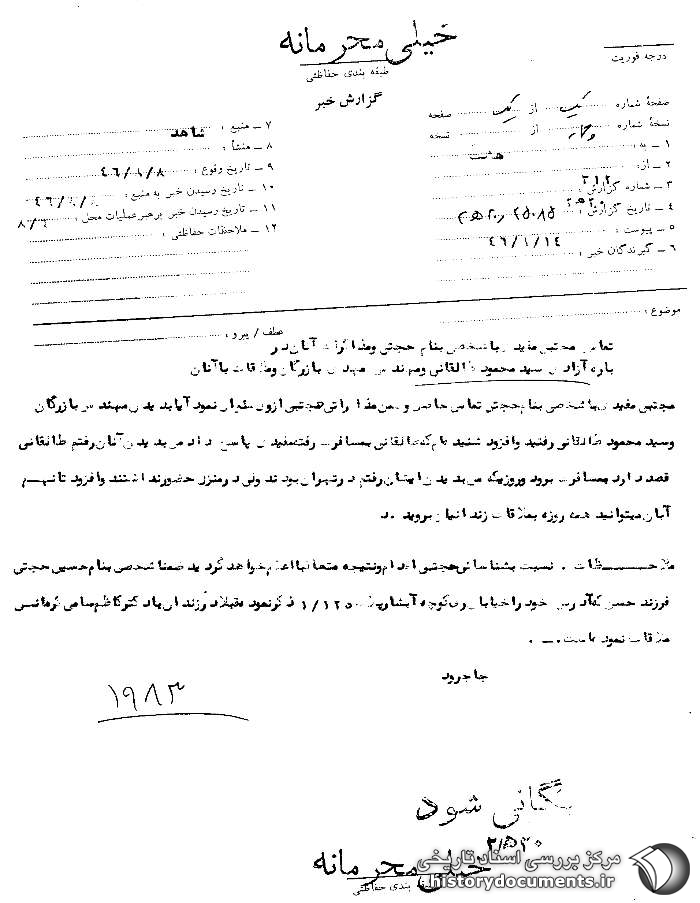 خیلی محرمانه
طبقه بندی حفاظتی
درجه فوریت
گزارش خبر
صفحهٔ شماره یک از یک صفحه
نسخهٔ شماره از نسخه
۱ ـ به :
۲ ـ از :
۳ ـ شماره گزارش : ۳۱۲
۴ ـ تاریخ گزارش :
۵ ـ پیوست : ۴۶/۸/۱۴
۶ ـ گیرندگان خبر :
۷ ـ منبع : شاهد
۸ ـ منشأ :
۹ ـ تاریخ وقوع : ۴۶/۸/۸
۱۰ ـ تاریخ رسیدن خبر به منبع :
۱۱ ـ تاریخ رسیدن خبر برهبر عملیات محل :
۱۲ ـ ملاحظات حفاظتی :
موضوع :
عطف / پیرو :
تماس مجتبی مفیدی با شخصی بنام حجتی ومذاکرات آنان در
باره آزادی سید محمود طالقانی ومهندس مهدی بازرگان وملاقات باآنان
مجتبی مفیدی باشخصی بنام حجتی تماس حاصل وضمن مذاکراتی حجتی ازوی سئوال نمود آیابدیدن مهندس بازرگان
وسید محمود طالقانی رفتید وافزود شنیده ام که طالقانی بمسافرت رفته مفیدی پاسخ داد من بدیدن آنان رفتم طالقانی
قصد دارد بمسافرت برود وروزیکه من بدیدن ایشان رفتم درتهران بودند ولی درمنزل حضورنداشتند وافزود تانهم
آبان میتوانید همه روزه بملاقات زندانیان بروید .
ملاحظات . نسبت بشناسائی حجتی اقدام ونتیجه متعاقبا اعلام خواهد گردید ضمنا شخصی بنام حسین حجتی
فرزند حسن که آدرس خود را خیابان ری کوچه آبشار پلاک ۱/۱۲۵ ذکرنمود قبلا درزندان با دکترکاظم سامی کرمانی
ملاقات نموده است .
جاجرود
۱۹۸۳
بایگانی شود
خیلی محرمانه
طبقه بندی حفاظتی
مرکز بررسی اسناد تاریخی
historydocuments.ir